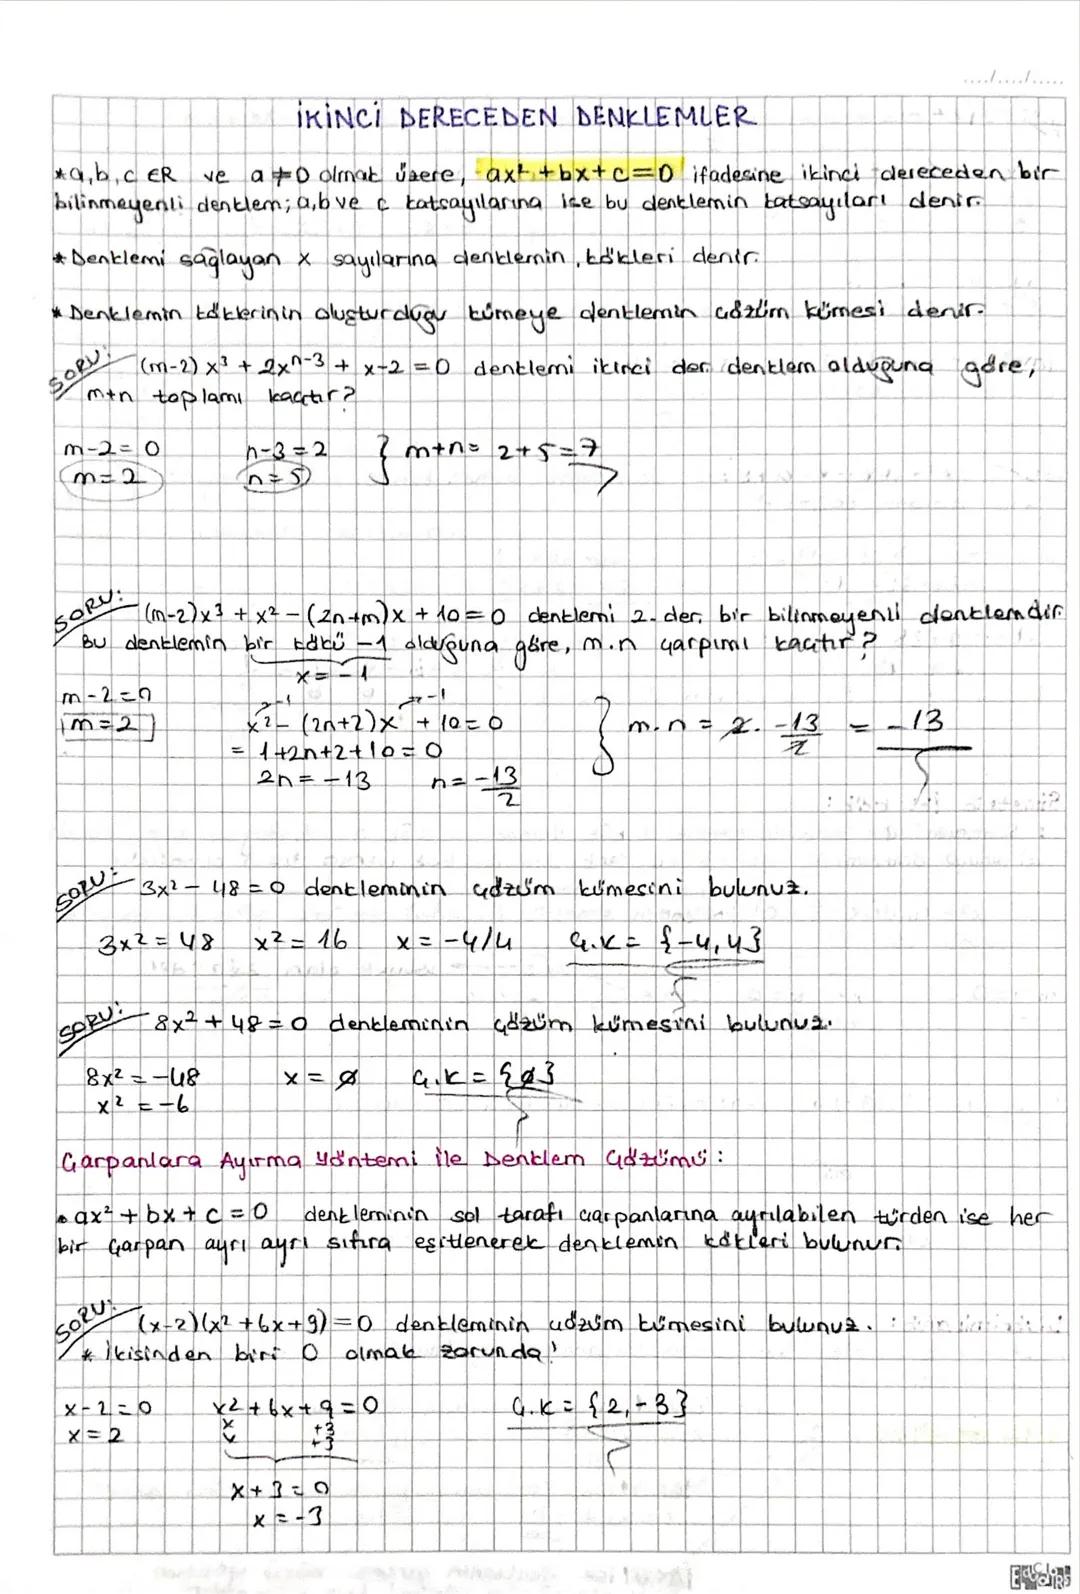 ..../..../.....
İKİNCİ DERECEDEN DENKLEMLER
*a,b,c ∈R ve a≠0 olmak üzere, ax²+bx+c=0 ifadesine ikinci dereceden bir
bilinmeyenli denklem; a,b ve c katsayılarına ise bu denklemin katsayıları denir.
*Denklemi sağlayan x sayılarına denklemin kökleri denir.
*Denklemin köklerinin oluşturduğu kümeye denklemin çözüm kümesi denir.
SORU: (m-2)x³ + 2xⁿ⁻³ + x-2 = 0 denklemi ikinci der. denklem olduğuna göre,
m+n toplamı kaçtır?
m-2=0 n-3=2 } m+n= 2+5=7
m=2 n=5
SORU: (m-2)x³ + x² - (2n+m)x + 10=0 denklemi 2. der. bir bilinmeyenli denklemdir.
Bu denklemin bir kökü -1 olduğuna göre, m.n çarpımı kaçtır?
x=-1
m-2=0 -1 -1
m=2 x² - (2n+2)x + 10=0 } m.n = 2. -13/2 = -13
= 1+2n+2+10=0
2n=-13 n=-13/2
SORU: 3x²-48=0 denkleminin çözüm kümesini bulunuz.
3x²=48 x²=16 x=-4/4 Ç.K= {-4,4}
SORU: 8x²+48=0 denkleminin çözüm kümesini bulunuz.
8x²=-48 x=∅ Ç.K={∅}
x²=-6
Çarpanlara Ayırma Yöntemi ile Denklem Çözümü:
• ax²+bx+c=0 denkleminin sol tarafı çarpanlarına ayrılabilen türden ise her
bir çarpan ayrı ayrı sıfıra eşitlenerek denklemin kökleri bulunur.
SORU: (x-2)(x²+6x+9)=0 denkleminin çözüm kümesini bulunuz.
* İkisinden biri 0 olmak zorunda!
x-2=0 x²+6x+9=0 Ç.K= {2,-3}
x=2 x +3
x +3
x+3=0
x=-3